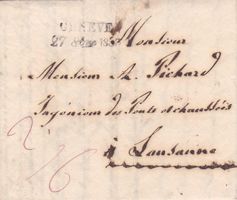 GENEVE
27
Monsieur
Monsieur A. Pichard
Ingénieur des Ponts et chaussées
à Lausanne